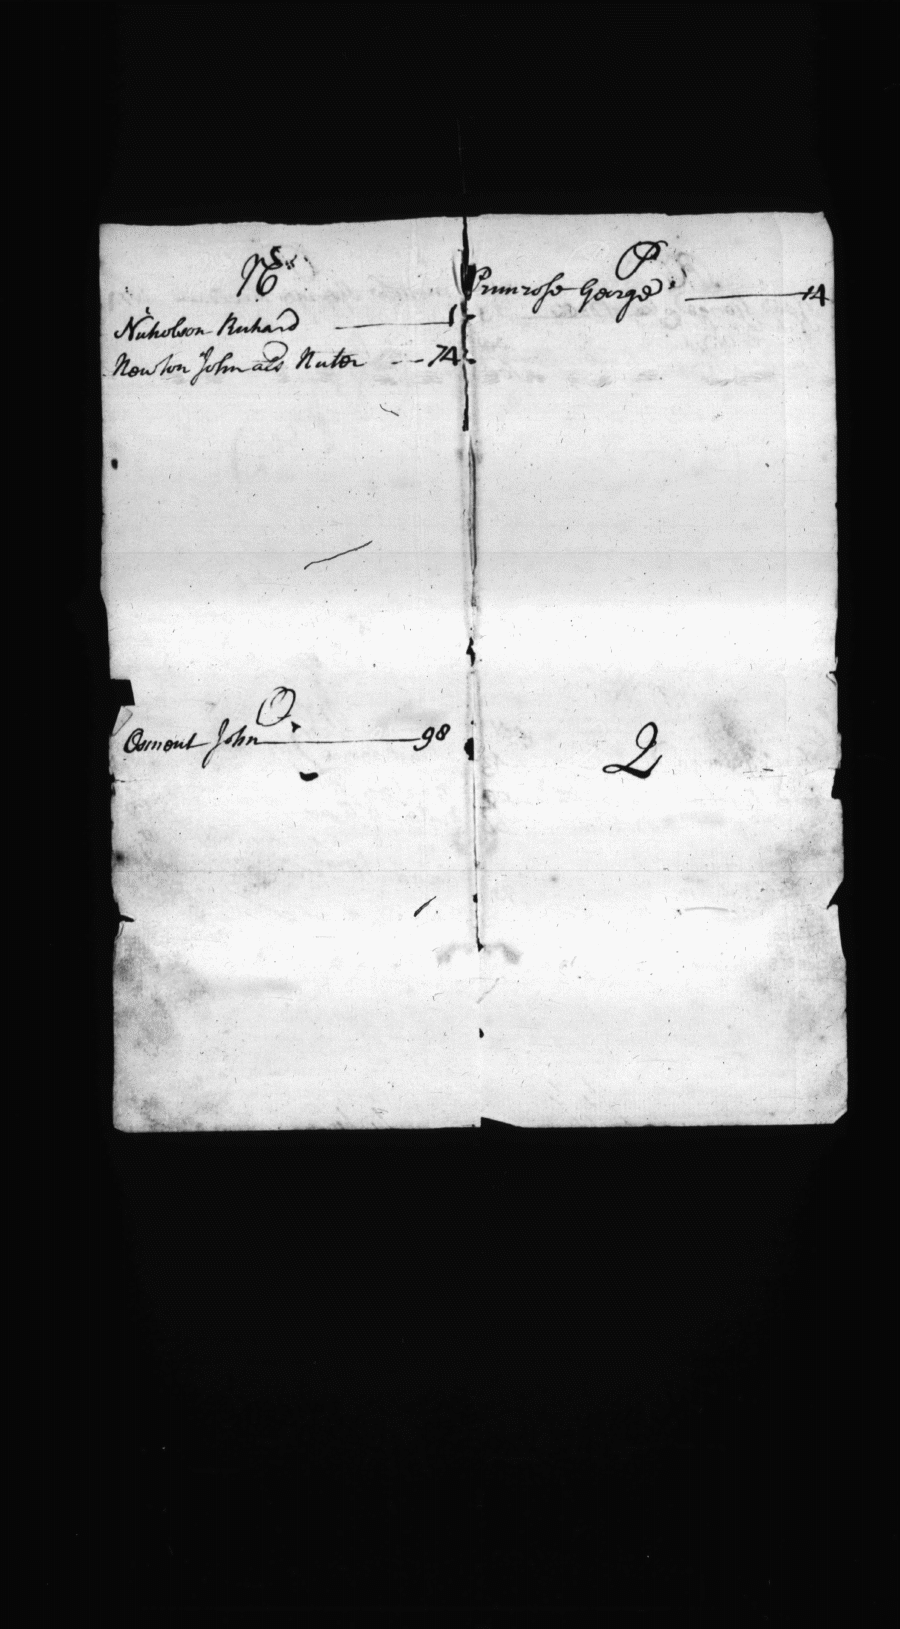 N
Nicholson Richard 1
Newton John als Nuter 74
O
Osment John 98
P
Primrose George 14
Q